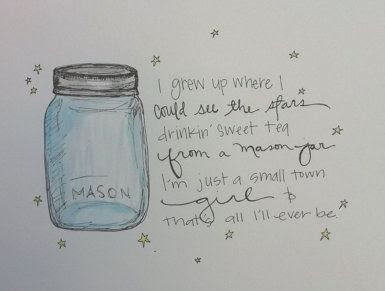 MASON
I grew up where I
could see the stars
drinkin' sweet tea
from a mason jar
I'm just a small town
girl &
that's all I'll ever be.